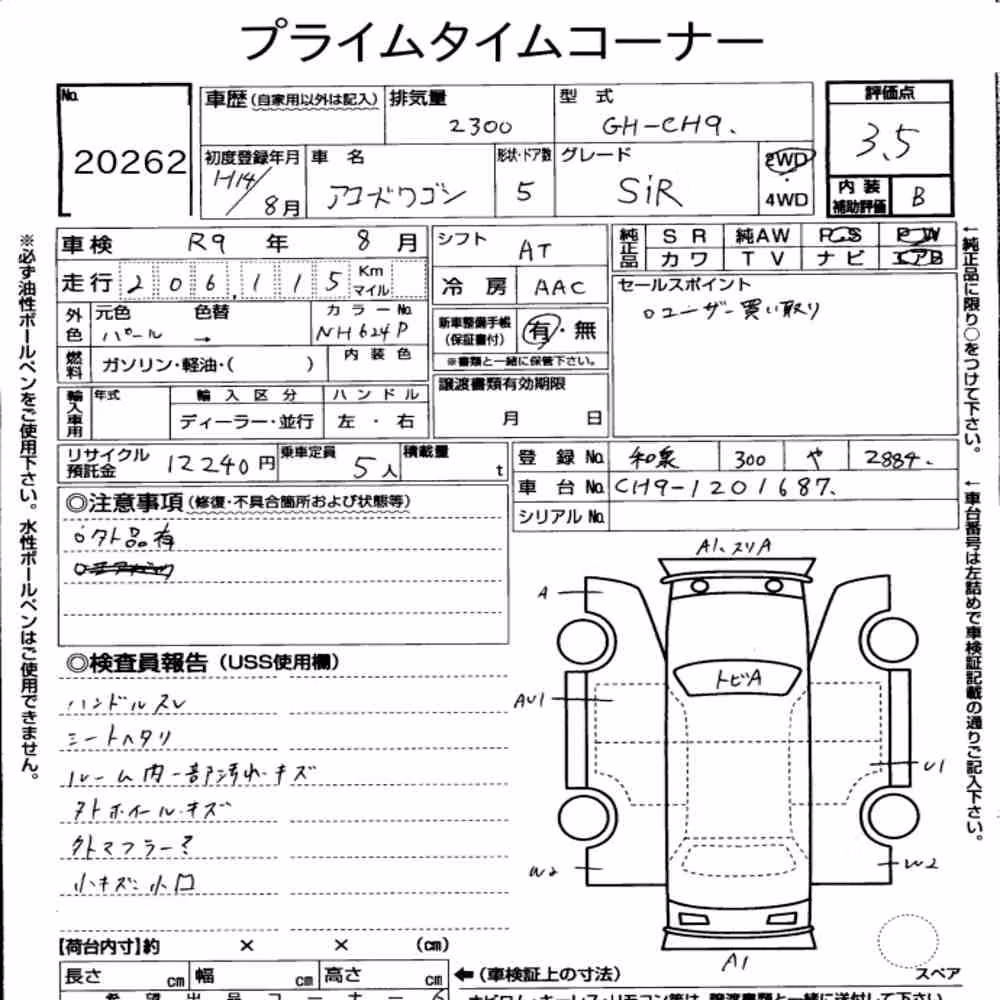 プライムタイムコーナー
No. 20262
車歴(自家用以外は記入) 排気量 2300 型式 GH-CH9.
評価点 3.5
初度登録年月 H14/8月 車名 アコードワゴン 形状・ドア数 5 グレード SiR 2WD・4WD
内装補助評価 B
車検 R9年 8月
シフト AT
純正品 SR 純AW PS PW
カワ TV ナビ エアB
走行 206,115 Km マイル
冷房 AAC
セールスポイント
○ユーザー買い取り
外色 元色 パール 色替 → カラーNo. NH624P
新車整備手帳(保証書付) 有・無
※書類と一緒に保管下さい。
燃料 ガソリン・軽油・( ) 内装色
譲渡書類有効期限
月 日
輸入車用 年式 輸入区分 ハンドル
ディーラー・並行 左・右
リサイクル預託金 12240円 乗車定員 5人 積載量 t
登録No. 和泉 300 や 2884.
車台No. CH9-1201687.
シリアルNo.
◎注意事項(修復・不具合箇所および状態等)
○外品有
◎検査員報告(USS使用欄)
ハンドルスレ
シートヘタリ
ルーム内一部汚れ・キズ
外ホイール・キズ
外マフラー
小キズ・小凹
【荷台内寸】約 × × (cm)
長さ cm 幅 cm 高さ cm
←(車検証上の寸法)
A1、スリA
A
トビA
AU1
U1
W2
W2
A1
スペア
※必ず油性ボールペンをご使用下さい。水性ボールペンはご使用できません。
←純正品に限り○をつけて下さい。
←車台番号は左詰めで車検証記載の通りご記入下さい。
希望出品コーナー